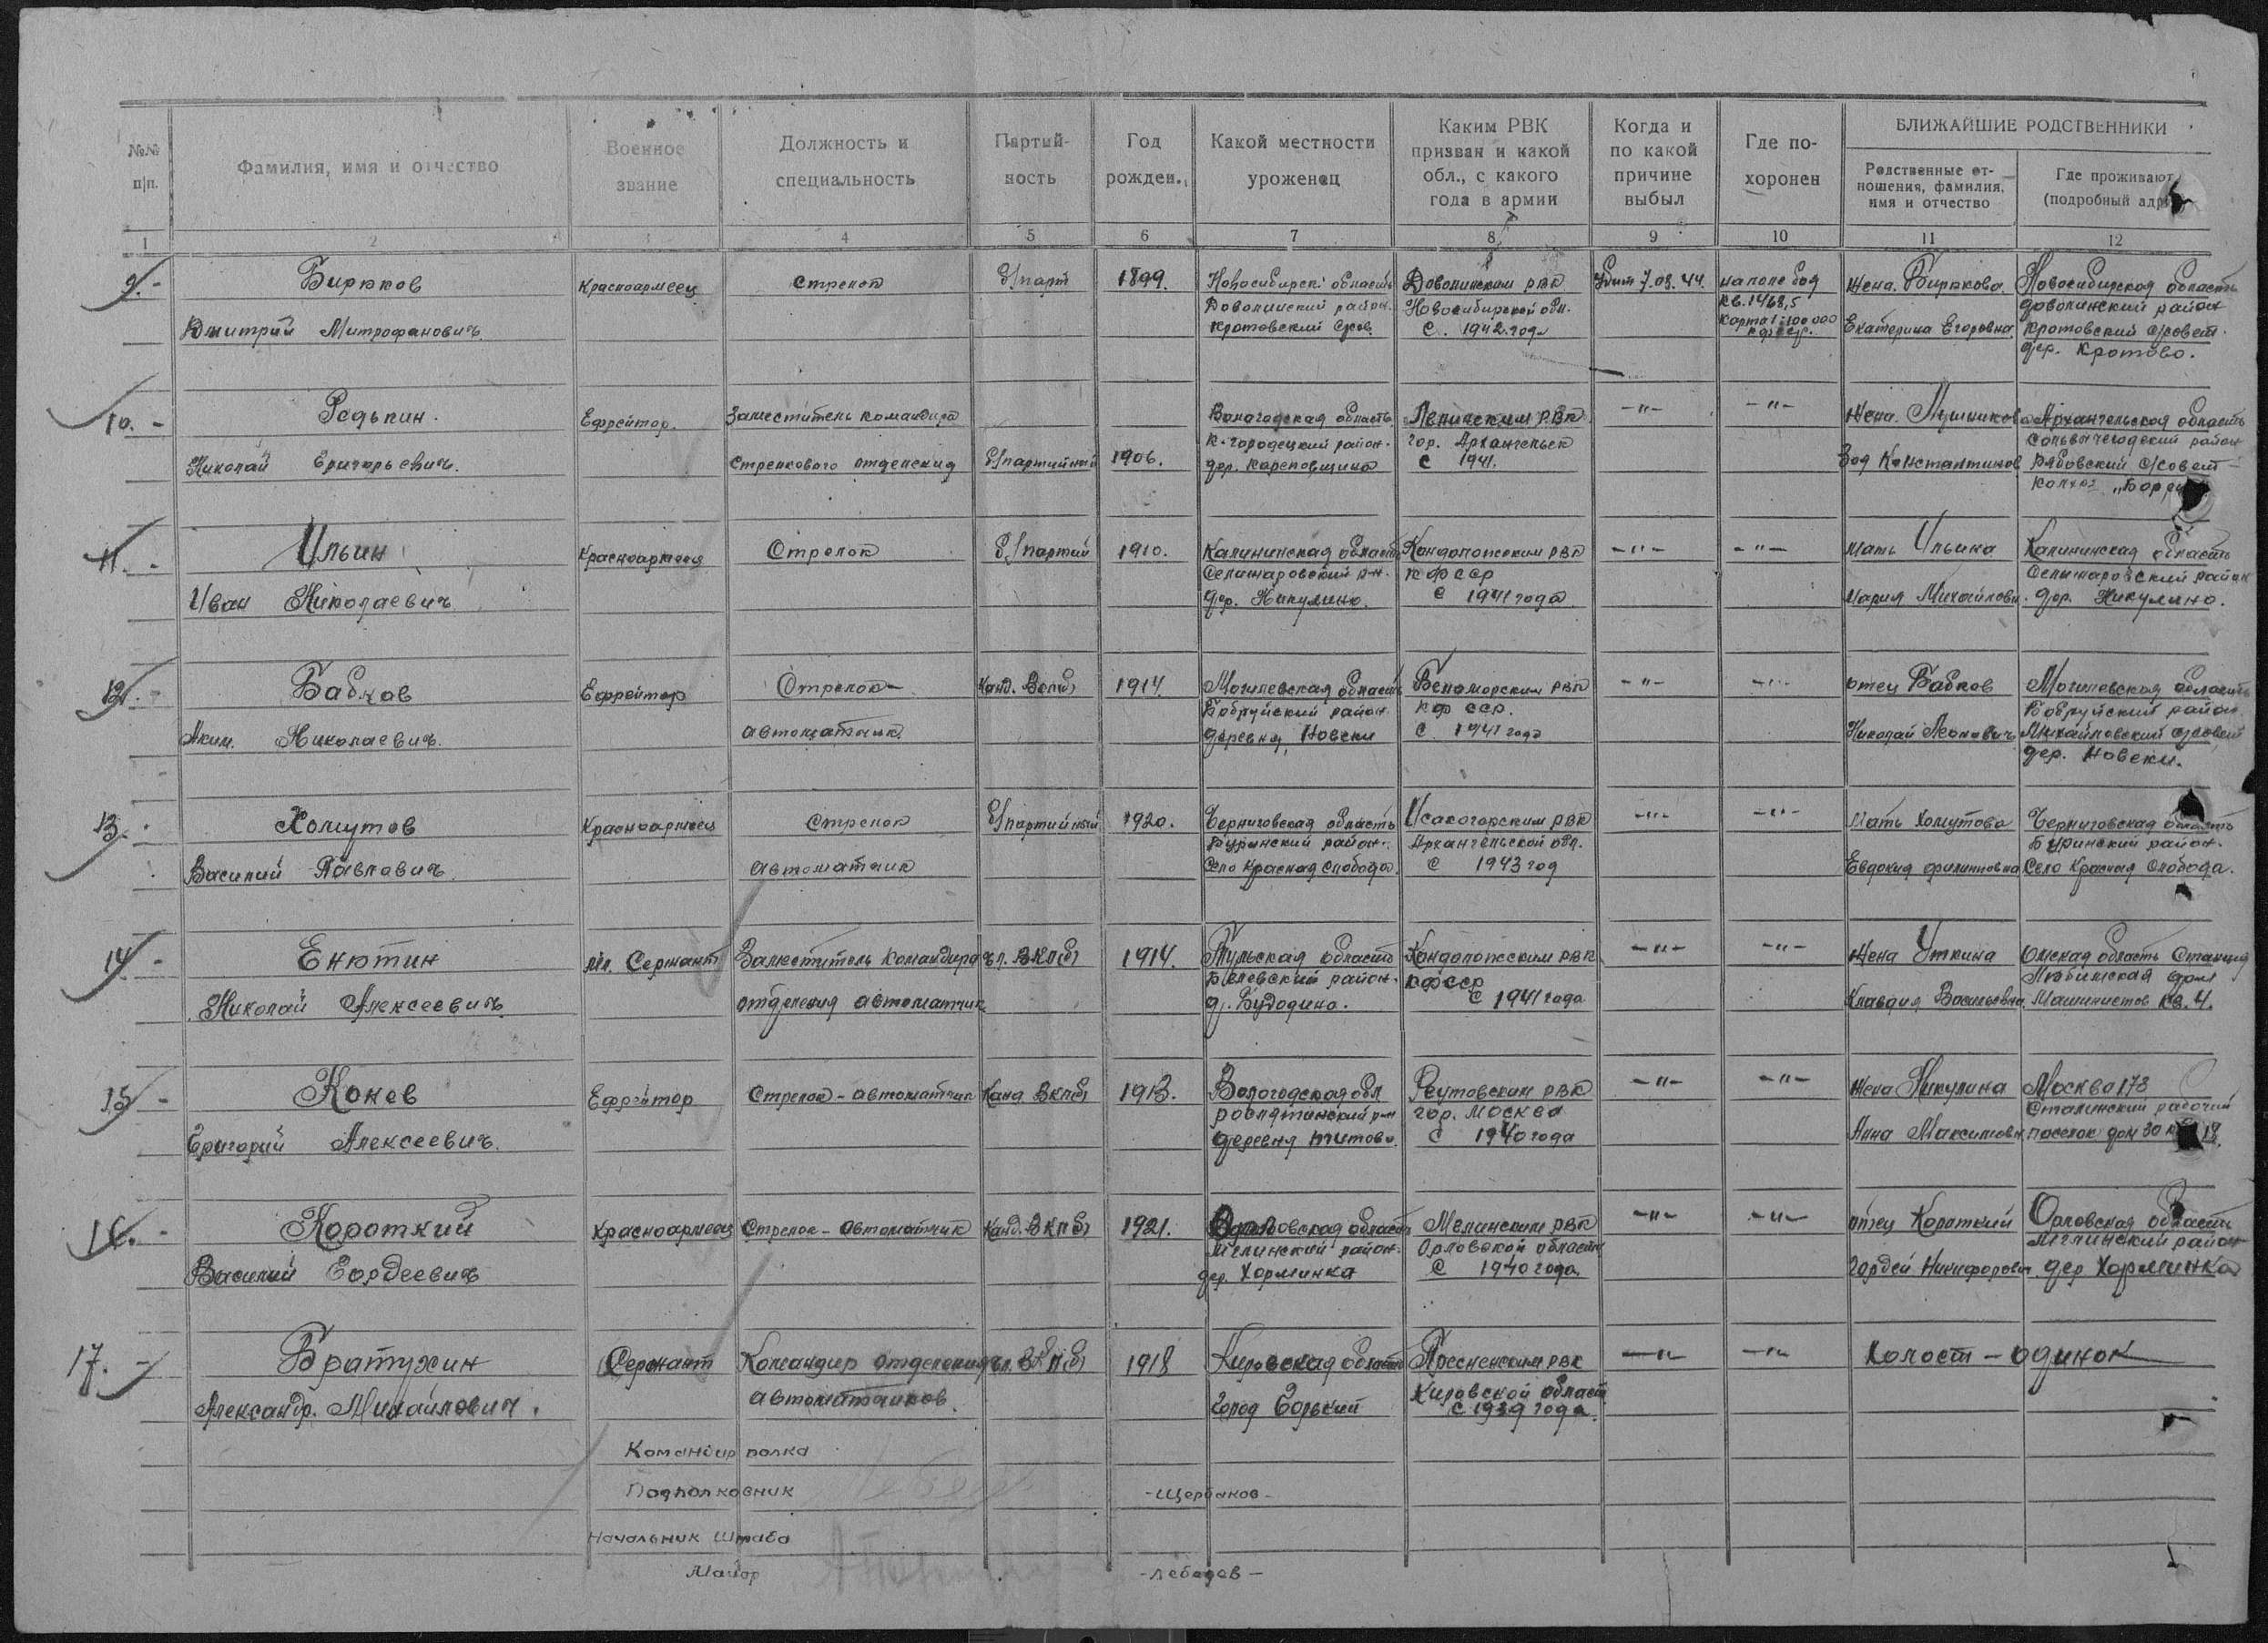 №№ п|п.
Фамилия, имя и отчество
Военное звание
Должность и специальность
Партий-ность
Год рожден.
Какой местности уроженец
Каким РВК призван и какой обл., с какого года в армии
Когда и по какой причине выбыл
Где по-хоронен
БЛИЖАЙШИЕ РОДСТВЕННИКИ
Родственные от-ношения, фамилия, имя и отчество
Где проживают (подробный адр
1 2 3 4 5 6 7 8 9 10 11 12
9. Бирюков красноармеец стрелок б/парт 1899. Новосибирск. область Доволинским РВК Убит 7.08.44. на поле боя жена. Бирюкова Новосибирская область
Доволинский район. Новосибирской обл. кв. 1468,5 Доволинский район
Дмитрий Митрофанович кротовский с/сов. с. 1942 года карта 1:100 000 Екатерина Егоровна кротовский с/совет.
дер. кротово.
10. Редькин. Ефрейтор. Заместитель командира Вологодская область Ленинским РВК -"- -"- Жена. Архангельская область
К-городецкий район. гор. Архангельск Сольвычегодский район
Николай Григорьевич. стрелкового отделения б/партийный 1906. дер. с 1941. Зоя Константинов Рябовский с/совет
колхоз
11. Ильин красноармеец Стрелок б/партий 1910. Калининская область Кондопожским РВК -"- -"- мать Ильина Калининская область
Селижаровский р-н. КФССР Селижаровский район
Иван Николаевич дер. Никулино. с 1941 года Мария Михайловн. дер. Никулино.
12. Бабков Ефрейтор Стрелок- Канд. ВКП(б) 1914. Могилевская область Беломорским РВК -"- -"- отец Бабков Могилевская область
Бобруйский район КФССР. Бобруйский район
Аким. Николаевич. автоматчик. деревня, Новеки с 1941 года Николай Леонович Михайловский с/совет
дер. Новеки.
13. Хомутов Красноармеец стрелок б/партийный 1920. Черниговская область Исакогорским РВК -"- -"- Мать Хомутова Черниговская область
Буринский район. Архангельской обл. Буринский район.
Василий Павлович автоматчик село Красная слобода. с 1943 год Евдокия Филипповна Село Красная слобода.
14. Енютин мл. Сержант Заместитель командира чл. ВКП(б) 1914. Тульская область Кондопожским РВК -"- -"- Жена Уткина Омская область Станция
Белевский район. КФССР Любинская дом
Николай Алексеевич отделения автоматчик д. Будодино. с 1941 года Клавдия Васильевна. Машинистов кв. 4.
15 Конев Ефрейтор Стрелок-автоматчик Канд ВКП(б) 1913. Вологодская обл Реутовским РВК -"- -"- Жена Никулина Москва 178
рослятинский р-н гор. Москва Сталинский рабочий
Григорий Алексеевич. деревня титово. с 1940 года Анна Максимовн. поселок дом 30
16. Короткий красноармеец Стрелок-автоматчик Канд. ВКП(б) 1921. Орловская область Мглинским РВК -"- -"- отец Короткий Орловская область
Мглинский район. Орловской области Мглинский район
Василий Гордеевич дер. Корминка с 1940 года. Гордей Никифорович дер Корминка
17. Братухин Сержант Командир отделения чл. ВКП(б) 1918 Кировская область РВК -"- -"- Холост - одинок
Александр. Михайлович. автоматчиков. город Горький Кировской област. с 1939 года.
Командир полка
Подполковник -Щербаков-
Начальник штаба
Майор -Лебедев-